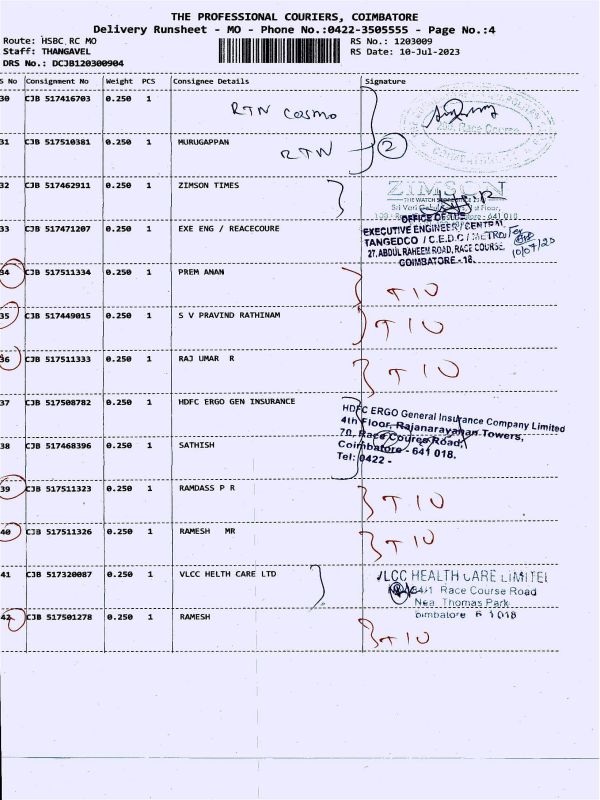 THE PROFESSIONAL COURIERS, COIMBATORE
Delivery Runsheet - MO - Phone No.:0422-3505555 - Page No.:4
Route: HSBC RC MO
RS No.: 1203009
Staff: THANGAVEL
RS Date: 10-Jul-2023
DRS No.: DCJB120300904
S No Consignment No Weight PCS Consignee Details Signature
30 CJB 517416703 0.250 1
RTN Cosmo
Race Course
31 CJB 517510381 0.250 1 MURUGAPPAN
RTN 2
32 CJB 517462911 0.250 1 ZIMSON TIMES
ZIMSON
THE WATCH
641 018
OFFICE OF THE
33 CJB 517471207 0.250 1 EXE ENG / REACECOURE
EXECUTIVE ENGINEER/CENTRAL
TANGEDCO / C.E.D.C / METRO/
27, ABDUL RAHEEM ROAD, RACE COURSE,
COIMBATORE - 18.
34 CJB 517511334 0.250 1 PREM ANAN
T 10
35 CJB 517449015 0.250 1 S V PRAVIND RATHINAM
T 10
36 CJB 517511333 0.250 1 RAJ UMAR R
T 10
37 CJB 517508782 0.250 1 HDFC ERGO GEN INSURANCE
HDFC ERGO General Insurance Company Limited
4th Floor, Rajanarayanan Towers,
70, Race Course Road,
Coimbatore - 641 018.
Tel: 0422 -
38 CJB 517468396 0.250 1 SATHISH
39 CJB 517511323 0.250 1 RAMDASS P R
T 10
40 CJB 517511326 0.250 1 RAMESH MR
T 10
41 CJB 517320087 0.250 1 VLCC HELTH CARE LTD
VLCC HEALTH CARE LIMITE
84/1 Race Course Road
Nea Thomas Park
oimbatore 6 1 018
42 CJB 517501278 0.250 1 RAMESH
T 10